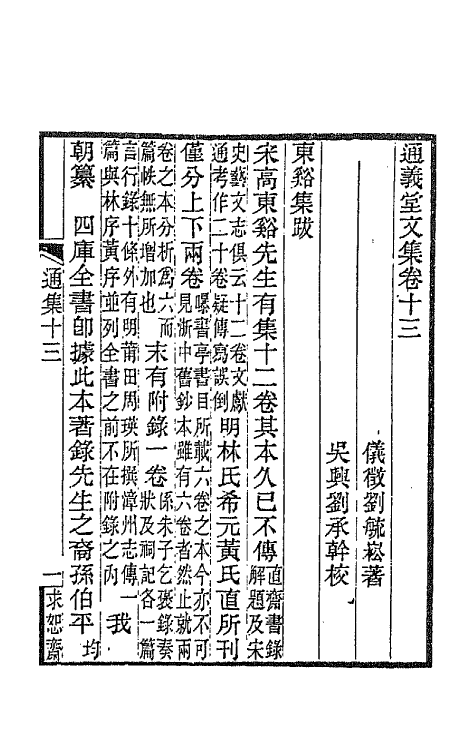 通義堂文集卷十三
儀徵劉毓崧著
吳興劉承幹校
東谿集跋
宋高東谿先生有集十二卷其本久已不傳直齋書錄解題及宋
史藝文志俱云十二卷文獻通考作二十卷疑傳寫誤倒明林氏希元黃氏直所刊
僅分上下兩卷曝書亭書目所載六卷之本今亦不可見浙中舊鈔本雖有六卷者然止就兩
卷之本分析爲六而篇帙無所增加也末有附錄一卷係朱子乞褒錄奏狀及祠記各一篇
言行錄十條外有明莆田周瑛所撰漳州志傳一篇與林序黃序並列全書之前不在附錄之內我
朝纂 四庫全書卽據此本著錄先生之裔孫伯平均
通集十三 一 求恕齋